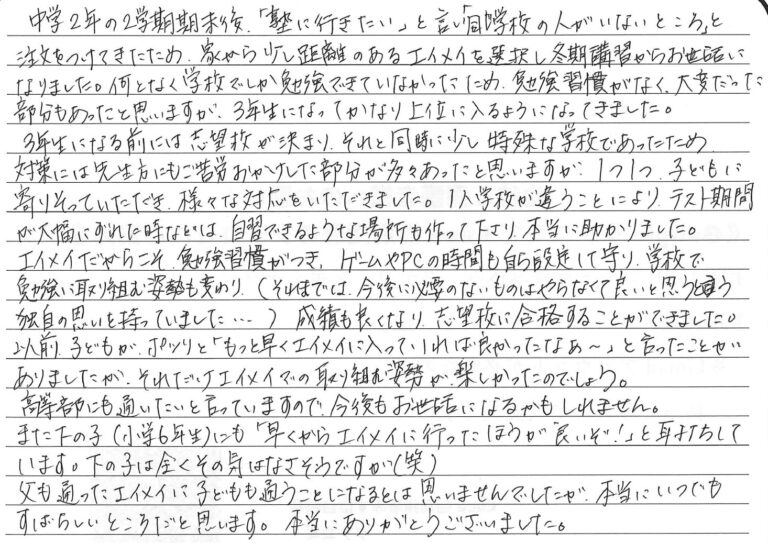 中学2年の2学期期末後、「塾に行きたい」と言い「同じ学校の人がいないところ」と
注文をつけてきたため、家から少し距離のあるエイメイを選択し冬期講習からお世話に
なりました。何となく学校でしか勉強できていなかったため、勉強習慣がなく、大変だった
部分もあったと思いますが、3年生になってかなり上位に入るようになってきました。
3年生になる前には志望校が決まり、それと同時に少し特殊な学校であったため、
対策には先生方にもご苦労おかけした部分が多々あったと思いますが、1つ1つ、子どもに
寄りそっていただき、様々な対応をいただきました。1人学校が違うことにより、テスト期間
が大幅にずれた時などは、自習できるような場所も作って下さり、本当に助かりました。
エイメイだからこそ、勉強習慣がつき、ゲームやPCの時間も自ら設定して守り、学校で
勉強に取り組む姿勢も変わり、(それまでは、今後に必要のないものはやらなくて良いと思う
独自の思いを持っていました…)成績も良くなり、志望校に合格することができました。
以前、子どもが、ポツリと「もっと早くエイメイに入っていれば良かったなぁ~」と言ったことが
ありましたが、それだけエイメイでの取り組む姿勢が、楽しかったのでしょう。
高等部にも通いたいと言っていますので、今後もお世話になるかもしれません。
また下の子(小学6年生)にも「早くからエイメイに行ったほうが良いぞ!」と耳打ちして
います。下の子は全くその気はなさそうですが(笑)
父も通ったエイメイに子どもも通うことになるとは思いませんでしたが、本当にいつでも
すばらしいところだと思います。本当にありがとうございました。